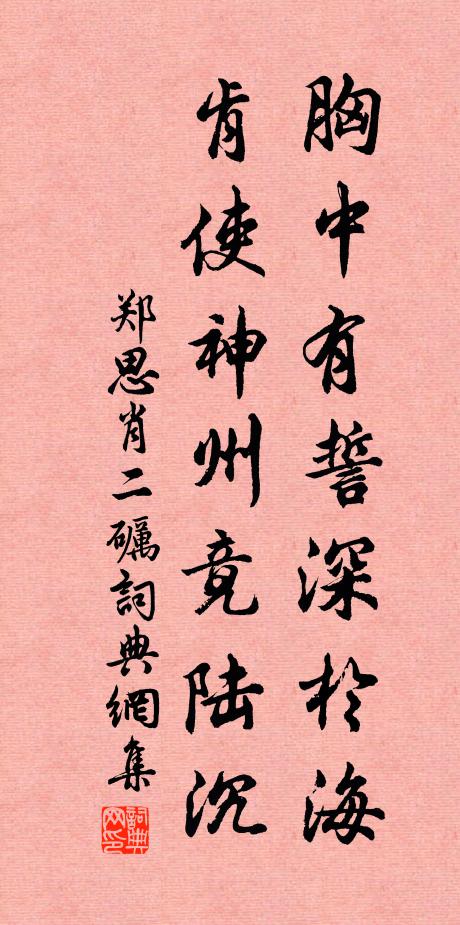 胸中有誓深於海
肯使神州竟陆沉
郑思肖二礪詞典網集
詞典
网印